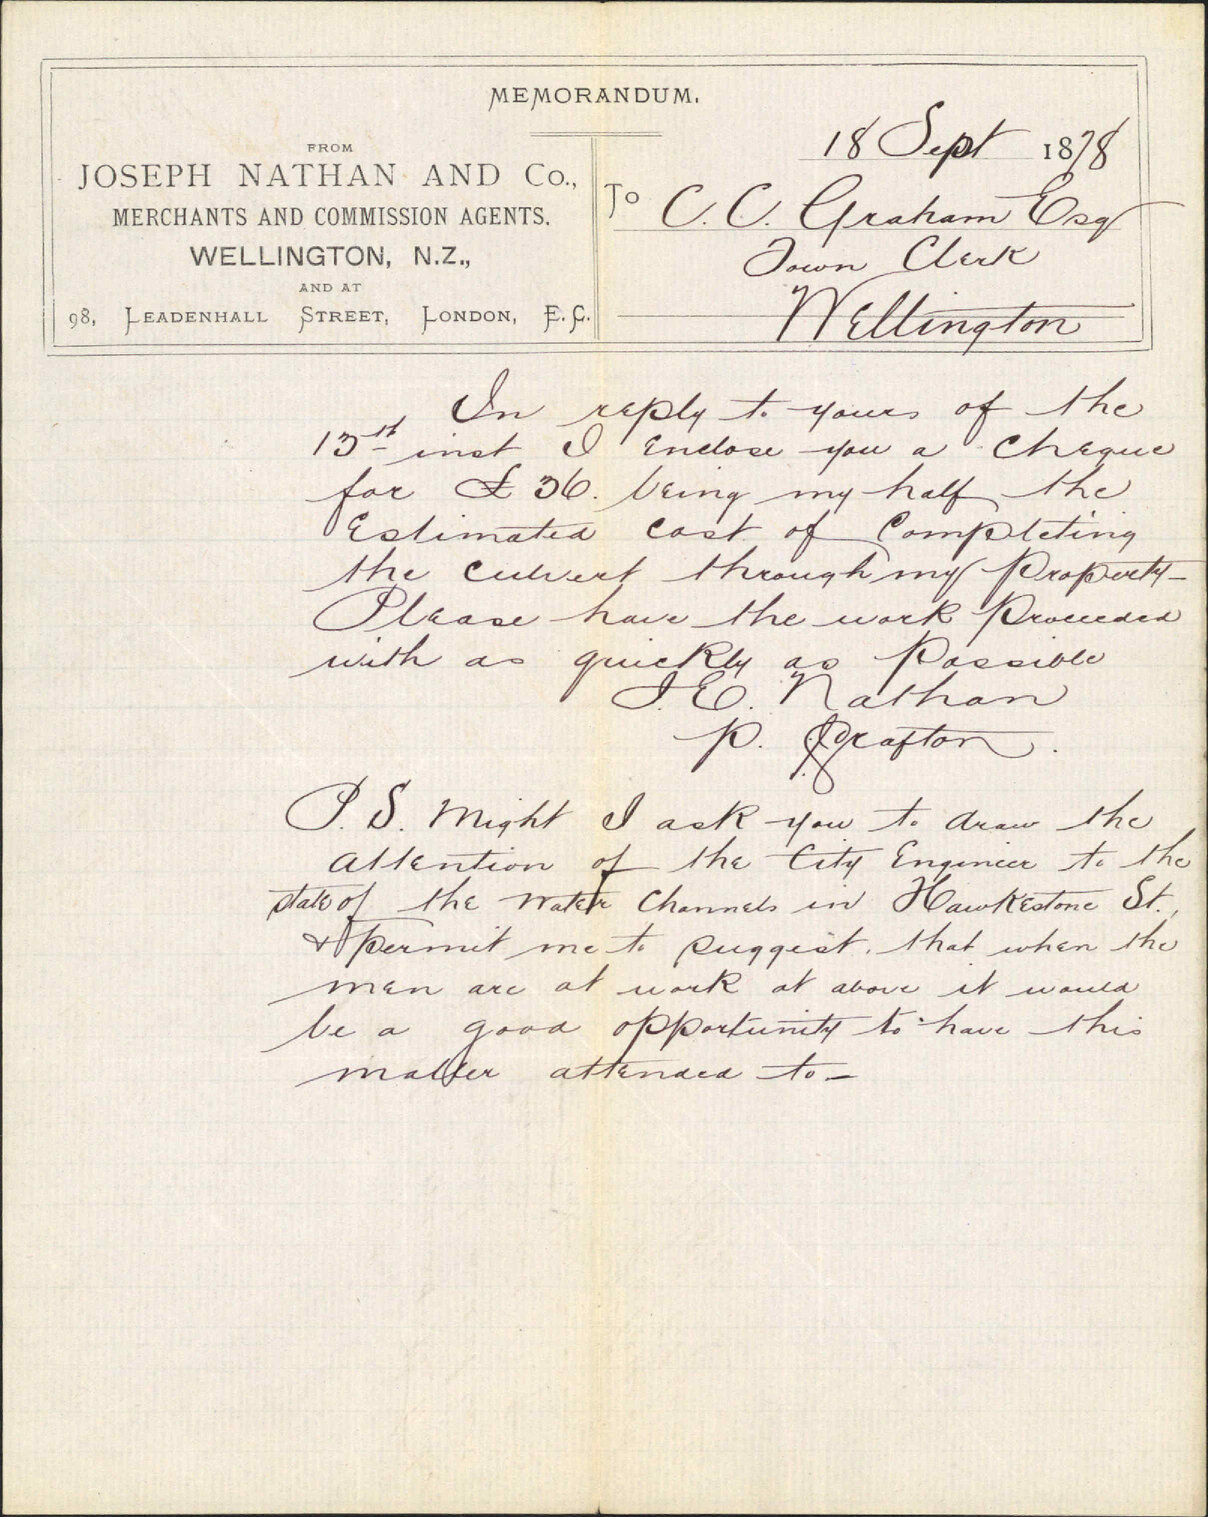 MEMORANDUM.
FROM
JOSEPH NATHAN AND Co.,
MERCHANTS AND COMMISSION AGENTS.
WELLINGTON, N.Z.,
AND AT
98, LEADENHALL STREET, LONDON, E.C.
18 Sept 1878
To C. C. Graham Esq
Town Clerk
Wellington
In reply to yours of the
13th inst I enclose you a cheque
for £36. being my half the
Estimated cost of Completing
the culvert through my Property-
Please have the work Proceeded
with as quickly as Possible
J. E. Nathan
P. Grafton.
P.S. Might I ask you to draw the
attention of the City Engineer to the
state of the water Channels in Hawkestone St.,
& permit me to suggest. that when the
men are at work at above it would
be a good opportunity to have this
matter attended to-